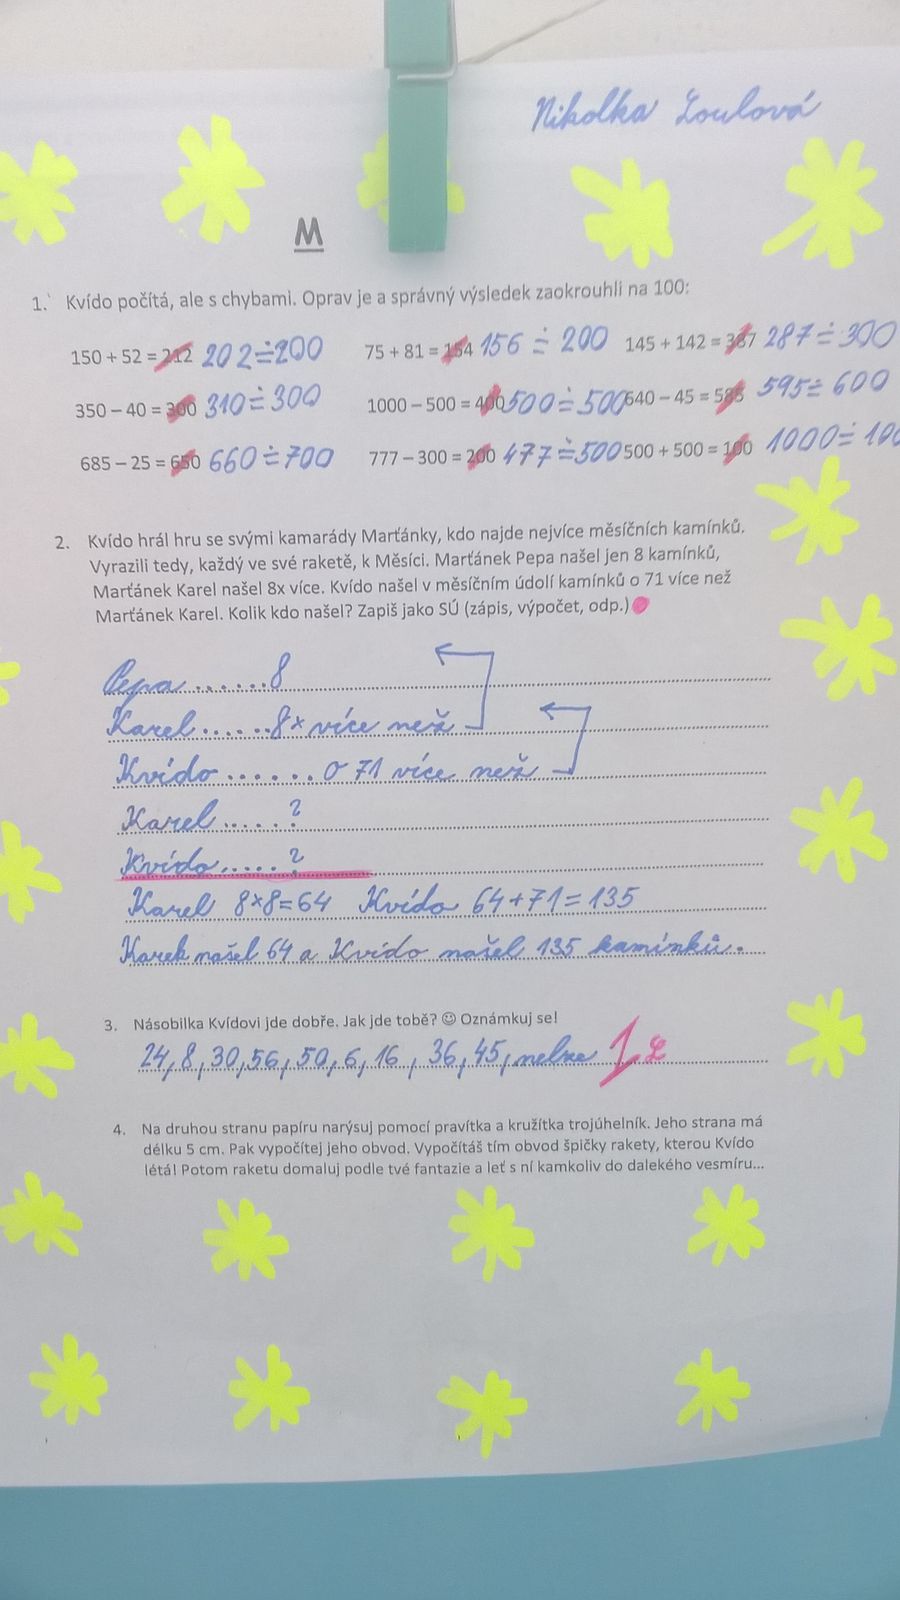 Nikolka Loulová
M
1. Kvído počítá, ale s chybami. Oprav je a správný výsledek zaokrouhli na 100:
150 + 52 = 212 202 ≐ 200 75 + 81 = 154 156 ≐ 200 145 + 142 = 367 287 ≐ 300
350 – 40 = 300 310 ≐ 300 1000 – 500 = 400 500 ≐ 500 640 – 45 = 585 595 ≐ 600
685 – 25 = 650 660 ≐ 700 777 – 300 = 200 477 ≐ 500 500 + 500 = 100 1000 ≐ 100
2. Kvído hrál hru se svými kamarády Marťánky, kdo najde nejvíce měsíčních kamínků.
Vyrazili tedy, každý ve své raketě, k Měsíci. Marťánek Pepa našel jen 8 kamínků,
Marťánek Karel našel 8x více. Kvído našel v měsíčním údolí kamínků o 71 více než
Marťánek Karel. Kolik kdo našel? Zapiš jako SÚ (zápis, výpočet, odp.)
Pepa ......8
Karel ......8x více než
Kvído ...... o 71 více než
Karel .....?
Kvído .....?
Karel 8x8=64 Kvído 64+71=135
Karel našel 64 a Kvído našel 135 kamínků.
3. Násobilka Kvídovi jde dobře. Jak jde tobě? ☺ Oznámkuj se!
24, 8, 30, 56, 50, 6, 16, 36, 45, nelze 1
4. Na druhou stranu papíru narýsuj pomocí pravítka a kružítka trojúhelník. Jeho strana má
délku 5 cm. Pak vypočítej jeho obvod. Vypočítáš tím obvod špičky rakety, kterou Kvído
létá! Potom raketu domaluj podle tvé fantazie a leť s ní kamkoliv do dalekého vesmíru...